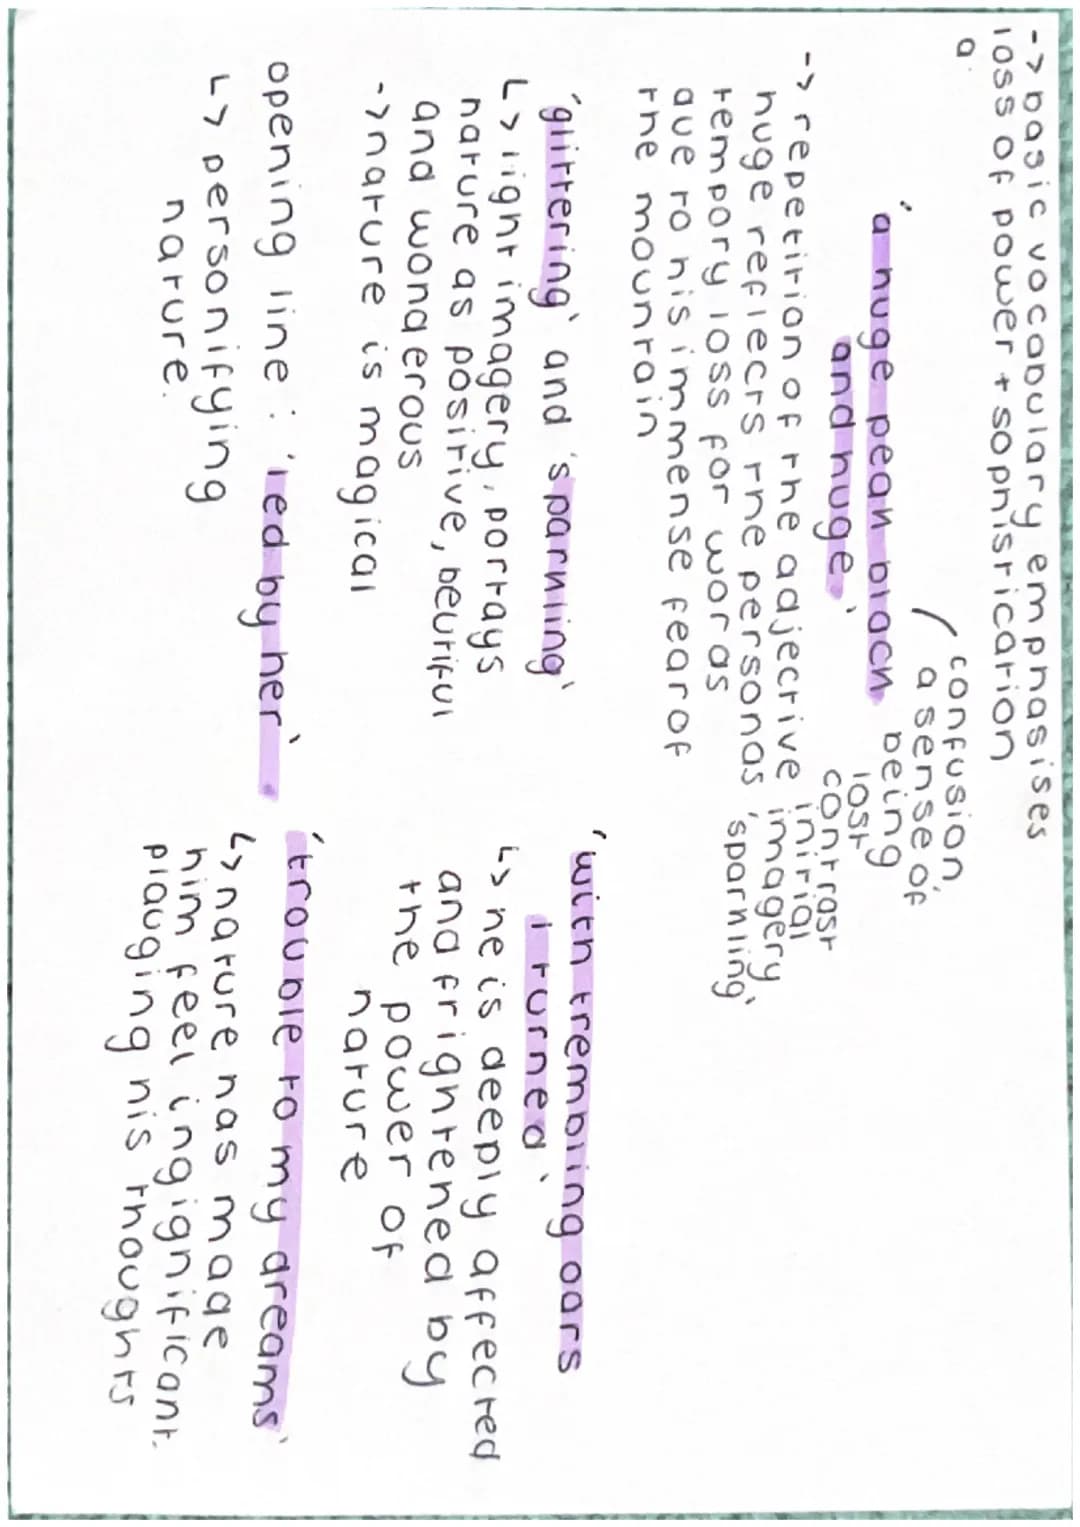 -> basic vocabulary emphasises
loss of power + sophistrication
a
'a huge peak black
and huge'
confusion,
a sense of
being
lost
-> repetition of the adjective
huge reflects the personas
tempory loss for words
due to his immense fear of
the mountain
contrast
initial
imagery
'sparkling'
'glittering' and 'sparkling'
↳ light imagery, portrays
nature as positive, beutiful
and wonderous
-> nature is magical
opening line: 'led by her'
↳ personifying
nature.
'with trembling oars
I turned'
↳ he is deeply affected
and frightened by
the power of
nature
'trouble to my dreams'
↳ nature has made
him feel ingignificant.
plauging his thoughts